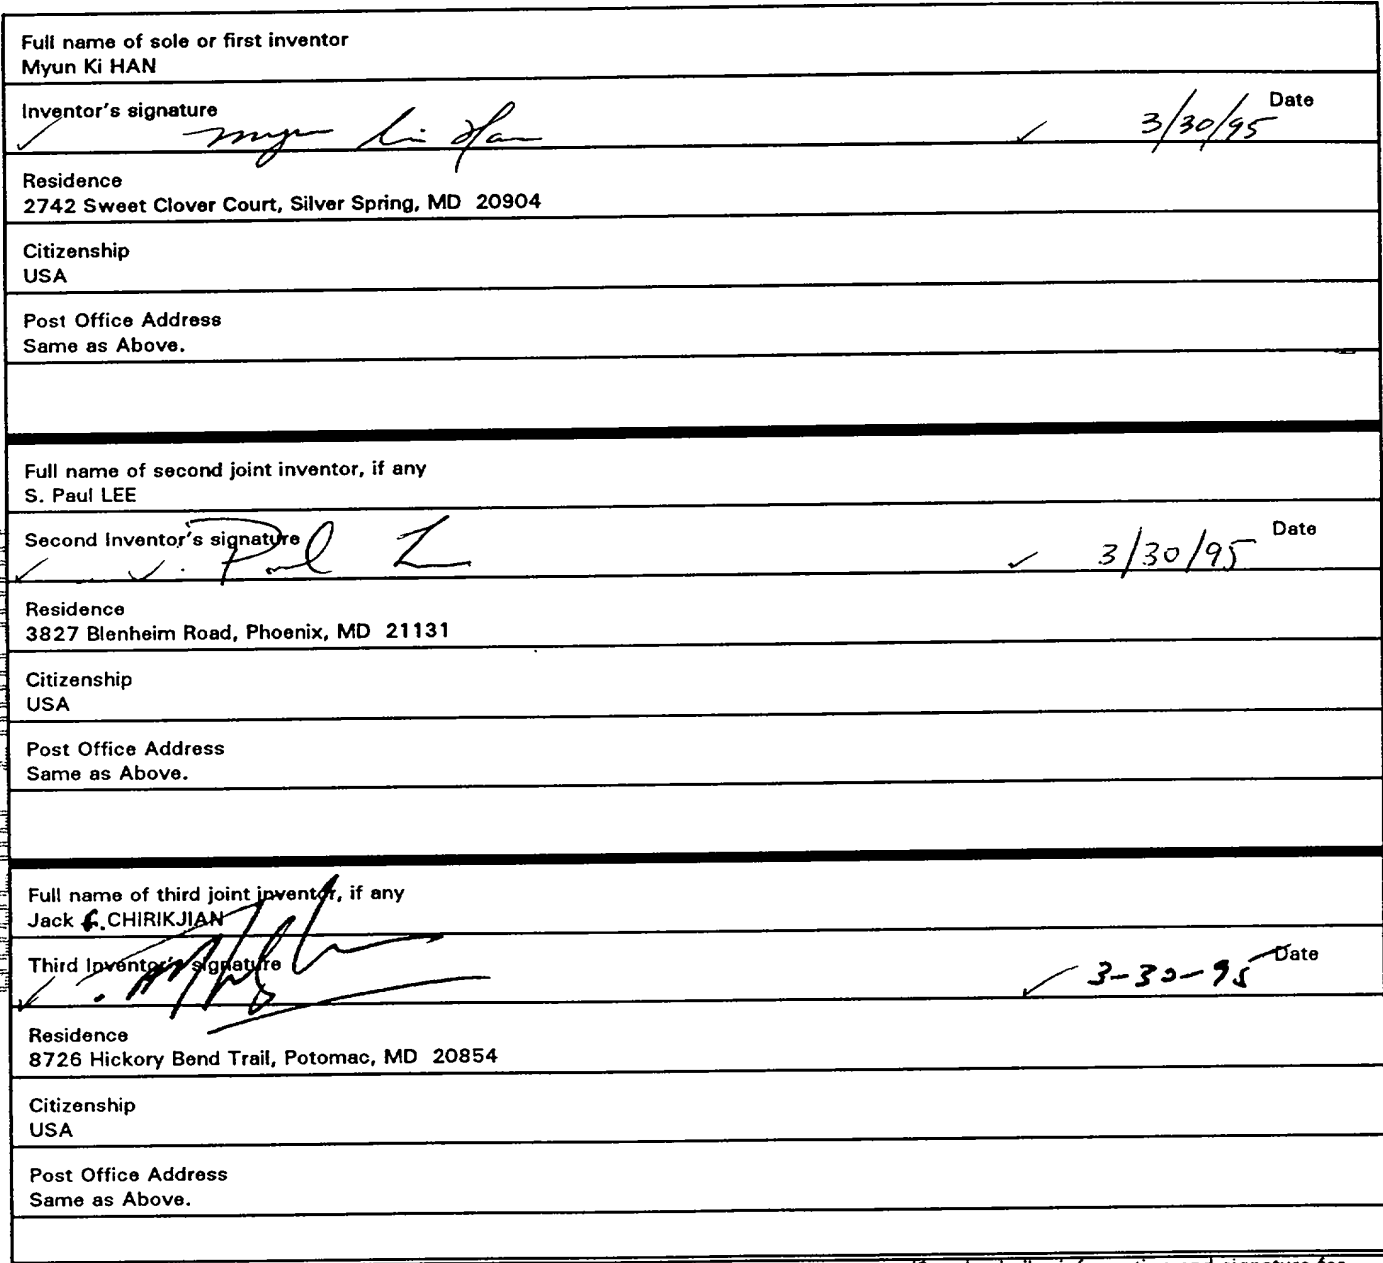 Full name of sole or first inventor
Myun Ki HAN
Inventor's signature Date
✓ Myun Ki Han ✓ 3/30/95
Residence
2742 Sweet Clover Court, Silver Spring, MD 20904
Citizenship
USA
Post Office Address
Same as Above.
Full name of second joint inventor, if any
S. Paul LEE
Second Inventor's signature Date
✓ S. Paul Lee ✓ 3/30/95
Residence
3827 Blenheim Road, Phoenix, MD 21131
Citizenship
USA
Post Office Address
Same as Above.
Full name of third joint inventor, if any
Jack CHIRIKJIAN
Third Inventor's signature Date
✓ ✓ 3-30-95
Residence
8726 Hickory Bend Trail, Potomac, MD 20854
Citizenship
USA
Post Office Address
Same as Above.